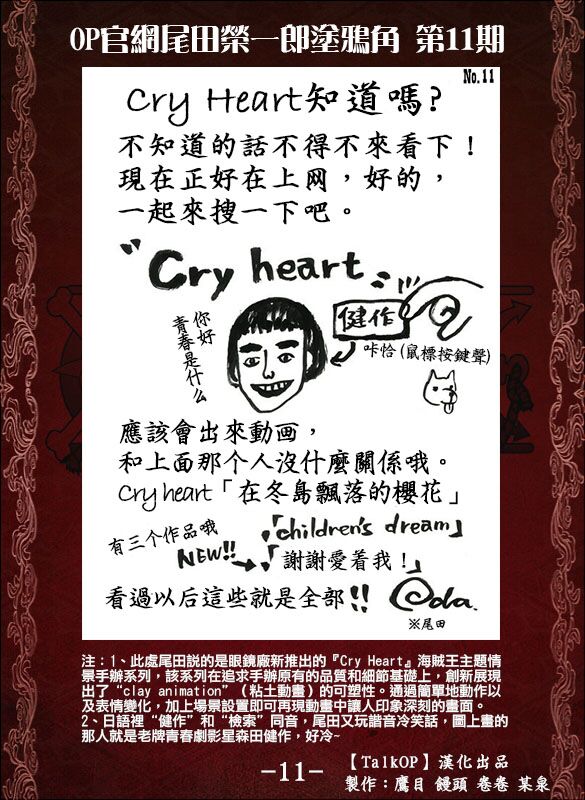 OP官網尾田榮一郎塗鴉角 第11期
No.11
Cry Heart知道嗎?
不知道的話不得不來看下！
現在正好在上网，好的，
一起來搜一下吧。
Cry heart
你好
青春是什么
健作
咔恰(鼠標按鍵聲)
應該會出來動画，
和上面那个人沒什麼關係哦。
Cry heart「在冬島飄落的櫻花」
有三个作品哦
「children's dream」
NEW!!
「謝謝愛着我！」
看過以后這些就是全部!!
Oda.
※尾田
注：1、此處尾田説的是眼鏡廠新推出的『Cry Heart』海賊王主題情
景手辦系列，該系列在追求手辦原有的品質和細節基礎上，創新展現
出了“clay animation”（粘土動畫）的可塑性。通過簡單地動作以
及表情變化，加上場景設置即可再現動畫中讓人印象深刻的畫面。
2、日語裡“健作”和“檢索”同音，尾田又玩諧音冷笑話，圖上畫的
那人就是老牌青春劇影星森田健作，好冷~
-11-
【TalkOP】漢化出品
製作：鷹目 饅頭 卷卷 某泉